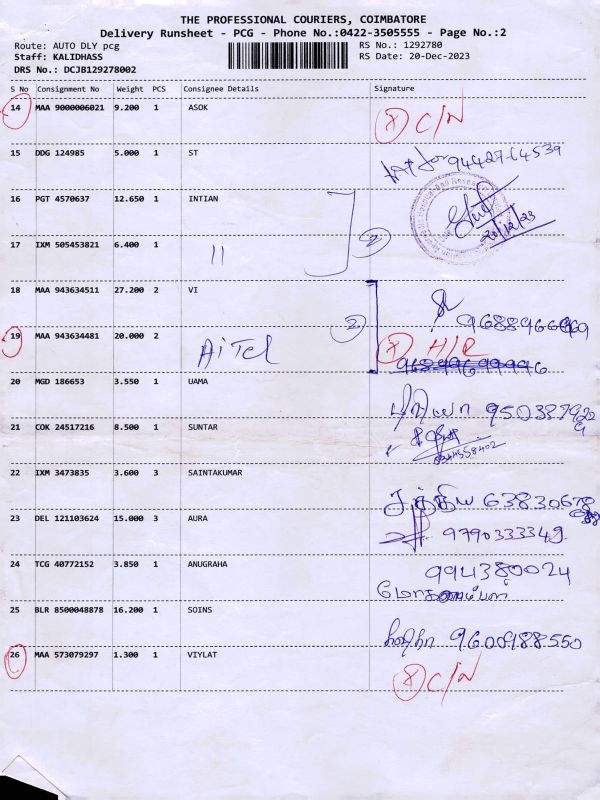 THE PROFESSIONAL COURIERS, COIMBATORE
Delivery Runsheet - PCG - Phone No.:0422-3505555 - Page No.:2
Route: AUTO DLY pcg RS No.: 1292780
Staff: KALIDHASS RS Date: 20-Dec-2023
DRS No.: DCJB129278002
S No Consignment No Weight PCS Consignee Details Signature
14 MAA 9000006021 9.200 1 ASOK
X C/N
15 DDG 124985 5.000 1 ST
9442764539
16 PGT 4570637 12.650 1 INTIAN
20/12/23
17 IXM 505453821 6.400 1
11
2
18 MAA 943634511 27.200 2 VI
2
19 MAA 943634481 20.000 2
AiTel
X H/R
20 MGD 186653 3.550 1 UAMA
பிரியா
21 COK 24517216 8.500 1 SUNTAR
22 IXM 3473835 3.600 3 SAINTAKUMAR
சத்திய 63830678
23 DEL 121103624 15.000 3 AURA
9790333349
24 TCG 40772152 3.850 1 ANUGRAHA
994380024
25 BLR 8500048878 16.200 1 SOINS
9600988550
26 MAA 573079297 1.300 1 VIYLAT
X C/N